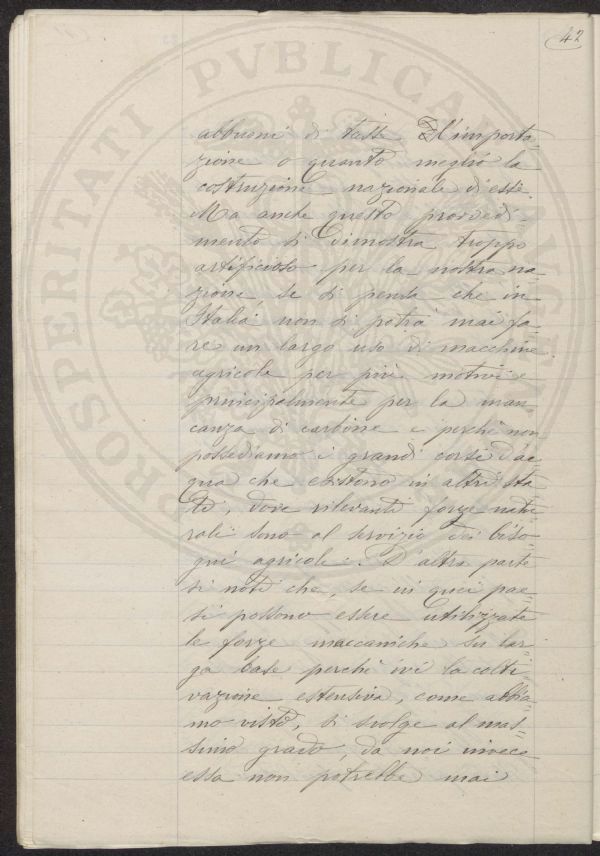 42
PROSPERITATI PVBLICAE AVGENDAE
abbuoni di tasse l'importa-
zione o quanto meglio la
costruzione nazionale d'essi.
Ma anche questo provvedi-
mento si dimostra troppo
artificioso per la nostra na-
zione, se si pensa che in
Italia non si potrà mai fa-
re un largo uso di macchine
agricole per più motivi e
principalmente per la man-
canza di carbone e perchè non
possediamo i grandi corsi d'ac
qua che esistono in altri sta
ti, dove rilevanti forze natu
rali sono al servizio dei biso-
gni agricoli. D'altra parte
si noti che, se in quei pae-
si possono essere utilizzate
le forze meccaniche su lar-
ga base perchè ivi la colti
vazione estensiva, come abbia-
mo visto, si svolge al mas-
simo grado, da noi invece
essa non potrebbe mai